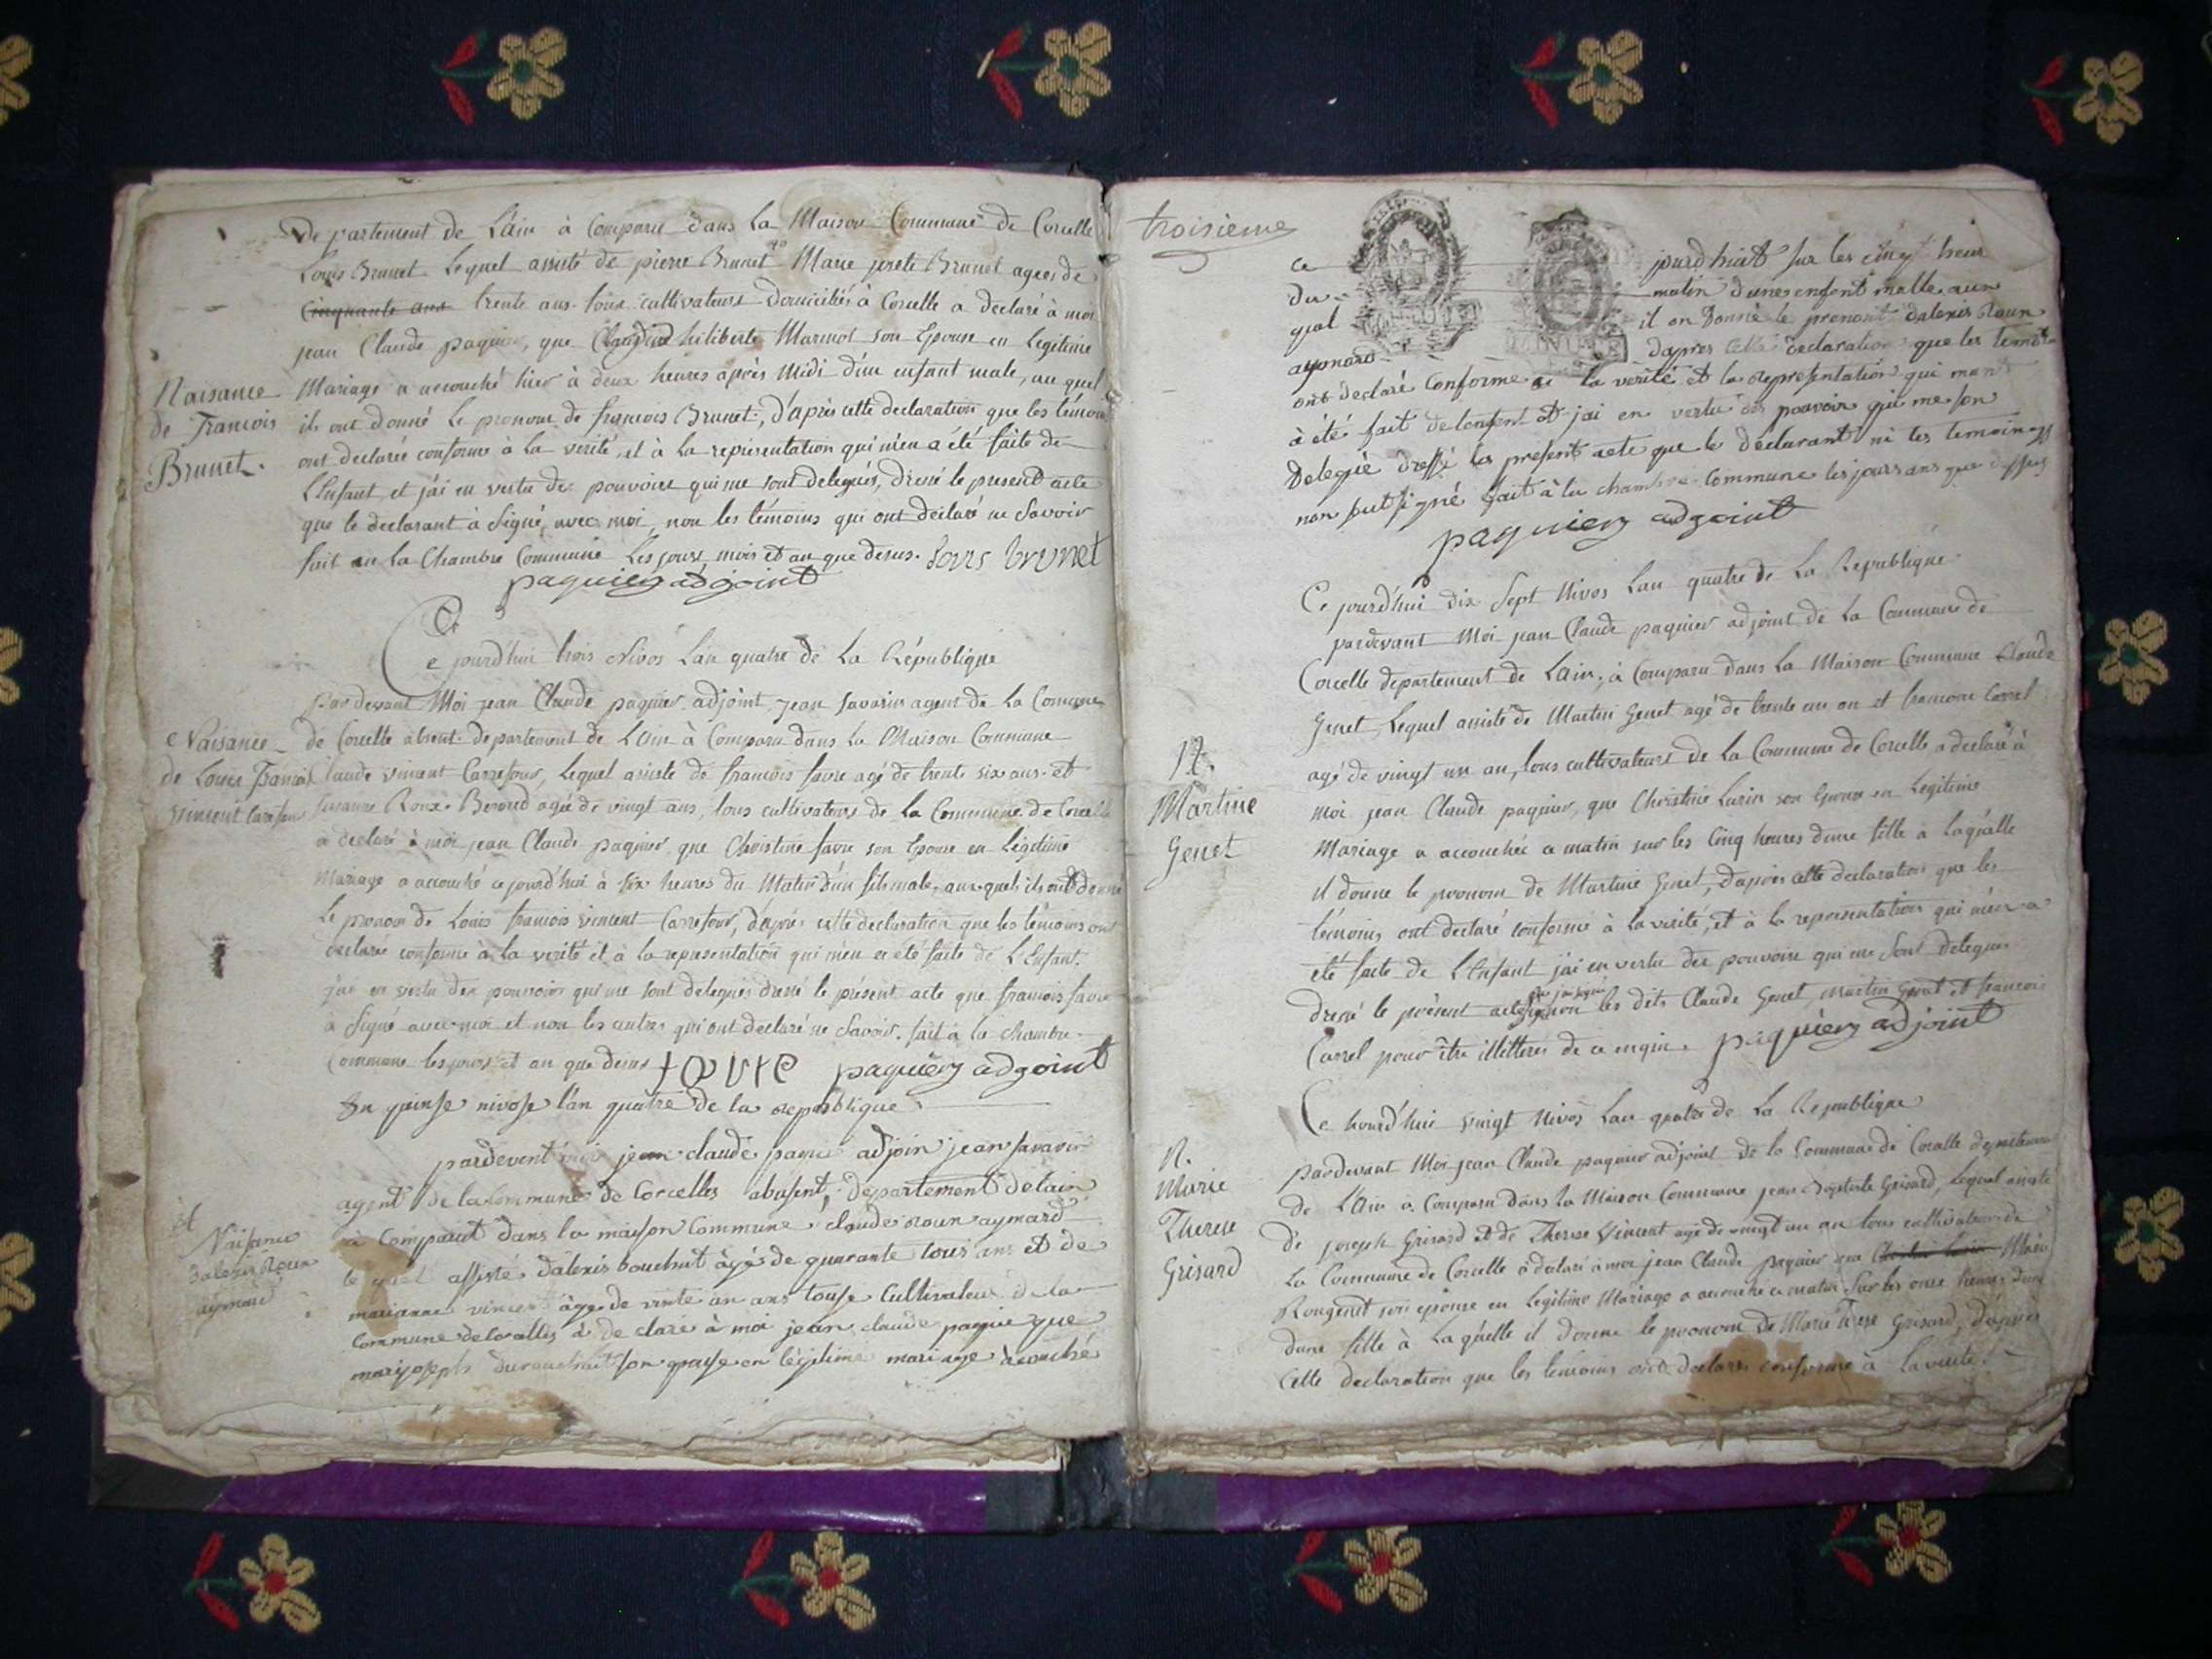 Departement de L'Ain à Comparu dans La Maison Commune de Corcelle
Louis Brunet Lequel assisté de pierre Brunet Marie Brunet agees de
Cinquante ans trente ans tous cultivateurs Domiciliés à Corcelle a declaré à moi
jean Claude paquier, que hiliberte Marmot son Epouse en Legitime
Naisance
de Francois
Brunet.
Mariage a accouché hier à deux heures après Midi d'un enfant male, au quel
ils ont donné Le pronom de francois Brunet, d'après cette declaration que les témoins
ont declarée conforme à La verité, et à La représentation qui m'en a été faite de
L'Enfant, et j'ai en vertu des pouvoirs qui me sont delegués, dressé le present acte
que le declarant à Signé, avec moi, non les témoins qui ont déclaré ne Savoir
fait en La Chambre Commune Les jours, mois et an que desus. Louis brunet
paquier adjoint
Ce jourd'hui trois Nivos L'an quatre de La République
Pardevant Moi jean Claude paquier adjoint, jean savarin agent de La Commune
Naisance
de Louis Francois
vincent Carrefour
de Corcelle absent departement de L'Ain à Comparu dans La Maison Commune
Claude vincent Carrefour, Lequel asiste de francois favre agé de trente six ans et
Susanne Roux Beroud agée de vingt ans, tous cultivateurs de La Commune de Corcelle
a declaré à moi jean Claude paquier que Christine favre son Epouse en Légitime
Mariage a accouché ce jourd'hui à six heures du Matin d'un fils male, auxquels ils ont donné
Le pronom de Louis francois vincent Carrefour, d'après cette declaration que les témoins ont
declarée conforme à la verité et à la représentation qui m'en a été faite de L'Enfant.
j'ai en vertu des pouvoirs qui me sont delegués dressé le présent acte que francois favre
à Signé avec moi et non les autres qui ont declaré ne Savoir. fait à la chambre
Commune les jours et an que desus favre paquier adjoint
du quinse nivose l'an quatre de la republique
pardevent moi jean claude paquie adjoin jean savarin
agent de la Commune de Corcelles absent, departement de lain
Naisance
dalexis Roux
aymard
à Comparut dans la maison Commune claude roux aymard
le quel assisté dalexis bouchut âgé de quarante tous ans et de
marianne vincent âge de vinte un ans touse Cultivateur de la
Commune de Corcelles à declaré à moi jean claude paquie que
marijoseph son epouse en légitime mariage à acouché
troisieme
ce jourd huit sur les cinq heur
du matin d'une enfent malle aux
quel il on Donné le prenont dalexis Roux
aymard dapres cette declaration que les temoin
ont declaré Conforme a la verité et la representation qui mant
à été fait de lenfent et jai en vertu des pouvoir qui me son
Delegué dressé la present acte que le declarant ni les temoings
non sut signé fait à la chambre Commune les jours ans que dessus
paquier adjoint
Ce jourd'hui dix Sept Nivos L'an quatre de La Republique
pardevant Moi jean Claude paquier adjoint de La Commune de
Corcelle departement de L'Ain, à Comparu dans La Maison Commune Claude
Genet, Lequel assisté de Martin Genet agé de trente un an et francois Carrel
N.
Martine
Genet
agé de vingt un an, tous cultivateurs de La Commune de Corcelle a declaré à
moi jean Claude paquier, que Christine Lurin son Epouse en Legitime
Mariage a accouchée ce matin sur les Cinq heures d'une fille a Laquelle
il donne le pronom de Martine Genet, d'après cette declaration que les
témoins ont declaré conforme à la verité, et à la représentation qui m'en a
été faite de L'Enfant j'ai en vertu des pouvoirs qui me Sont delegués
dressé le présent acte non les dits Claude Genet, Martin Genet et francois
Carrel pour être illetterés de ce enquis. paquier adjoint
Ce hourd'hui vingt Nivos L'an quatre de La Republique
N.
Marie
Therese
Grisard
pardevant Moi jean Claude paquier adjoint de la Commune de Corcelle departement
de L'Ain a Comparu dans la Maison Commune jean Baptiste Grisard, Lequel assisté
de joseph Grisard et de Therese Vincent agé de vingt un an tous cultivateurs de
La Commune de Corcelle a declaré à moi jean Claude paquier que Christine Lurin Marie
Rougemt son épouse en Legitime Mariage a accouché ce matin Sur les onze heures d'une
d'une fille à Laquelle il donne le pronom de Marie Terese Grisard, d'après
Cette declaration que les témoins ont declarés conforme à La verité.